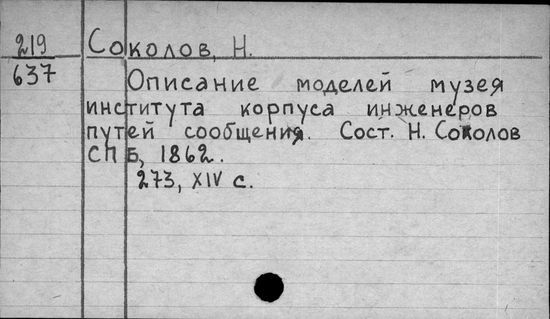 219 Соколов, Н.
637 Описание моделей музея
института корпуса инженеров
путей сообщения. Сост. Н. Соколов
СПБ, 1862.
273, XIV с.